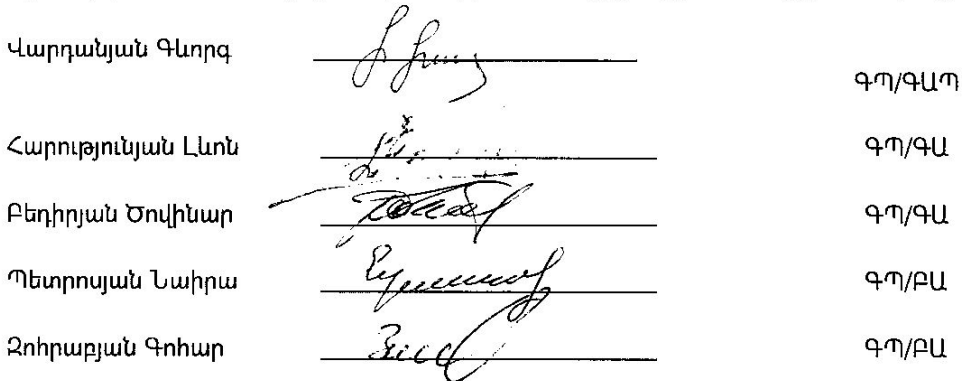 Վարդանյան Գևորգ
ԳՊ/ԳԱՊ
Հարությունյան Լևոն ԳՊ/ԳԱ
Բեդիրյան Ծովինար ԳՊ/ԳԱ
Պետրոսյան Նաիրա ԳՊ/ԲԱ
Զոհրաբյան Գոհար ԳՊ/ԲԱ